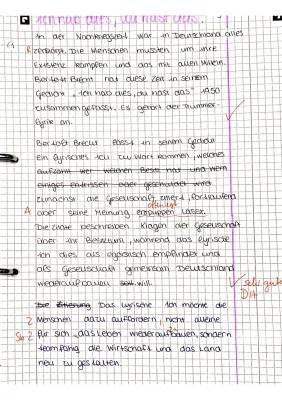 "Ich hab dies, du hast das".
In der Nachkriegszeit war in Deutschland alles
R zerstört. Die Menschen mussten um ihre
Existenz kämpfen und das mit allen Mitteln.
Bertolt Brecht hat diese Zeit in seinem
Gedicht "Ich hab dies, du hast das" 1950
zusammengefasst. Es gehört der Trümmer-
lyrik an.
Bertolt Brecht lässt in seinem Gedicht
ein lyrisches Ich zu Wort kommen, welches
aufzählt wer welchen Besitz hat und wem
einiges entrissen oder geschuldet wird
zunächst die Gesellschaft zitiert, fortlaufend
A aber seine Meinung entpuppen lässt.
Die Zitate beschreiben Klagen der Gesellschaft
über ihr Besitztum, während das lyrische
Ich dies als egoistisch empfindet und
als Gesellschaft gemeinsam Deutschland
wiederaufbauen will.
sehr gute
Die Das lyrische Ich möchte die
Z Menschen dazu auffordern, nicht alleine
für sich das Leben wiederaufbauen, sondern
teamfähig die Wirtschaft und das Land
neu zu gestalten.